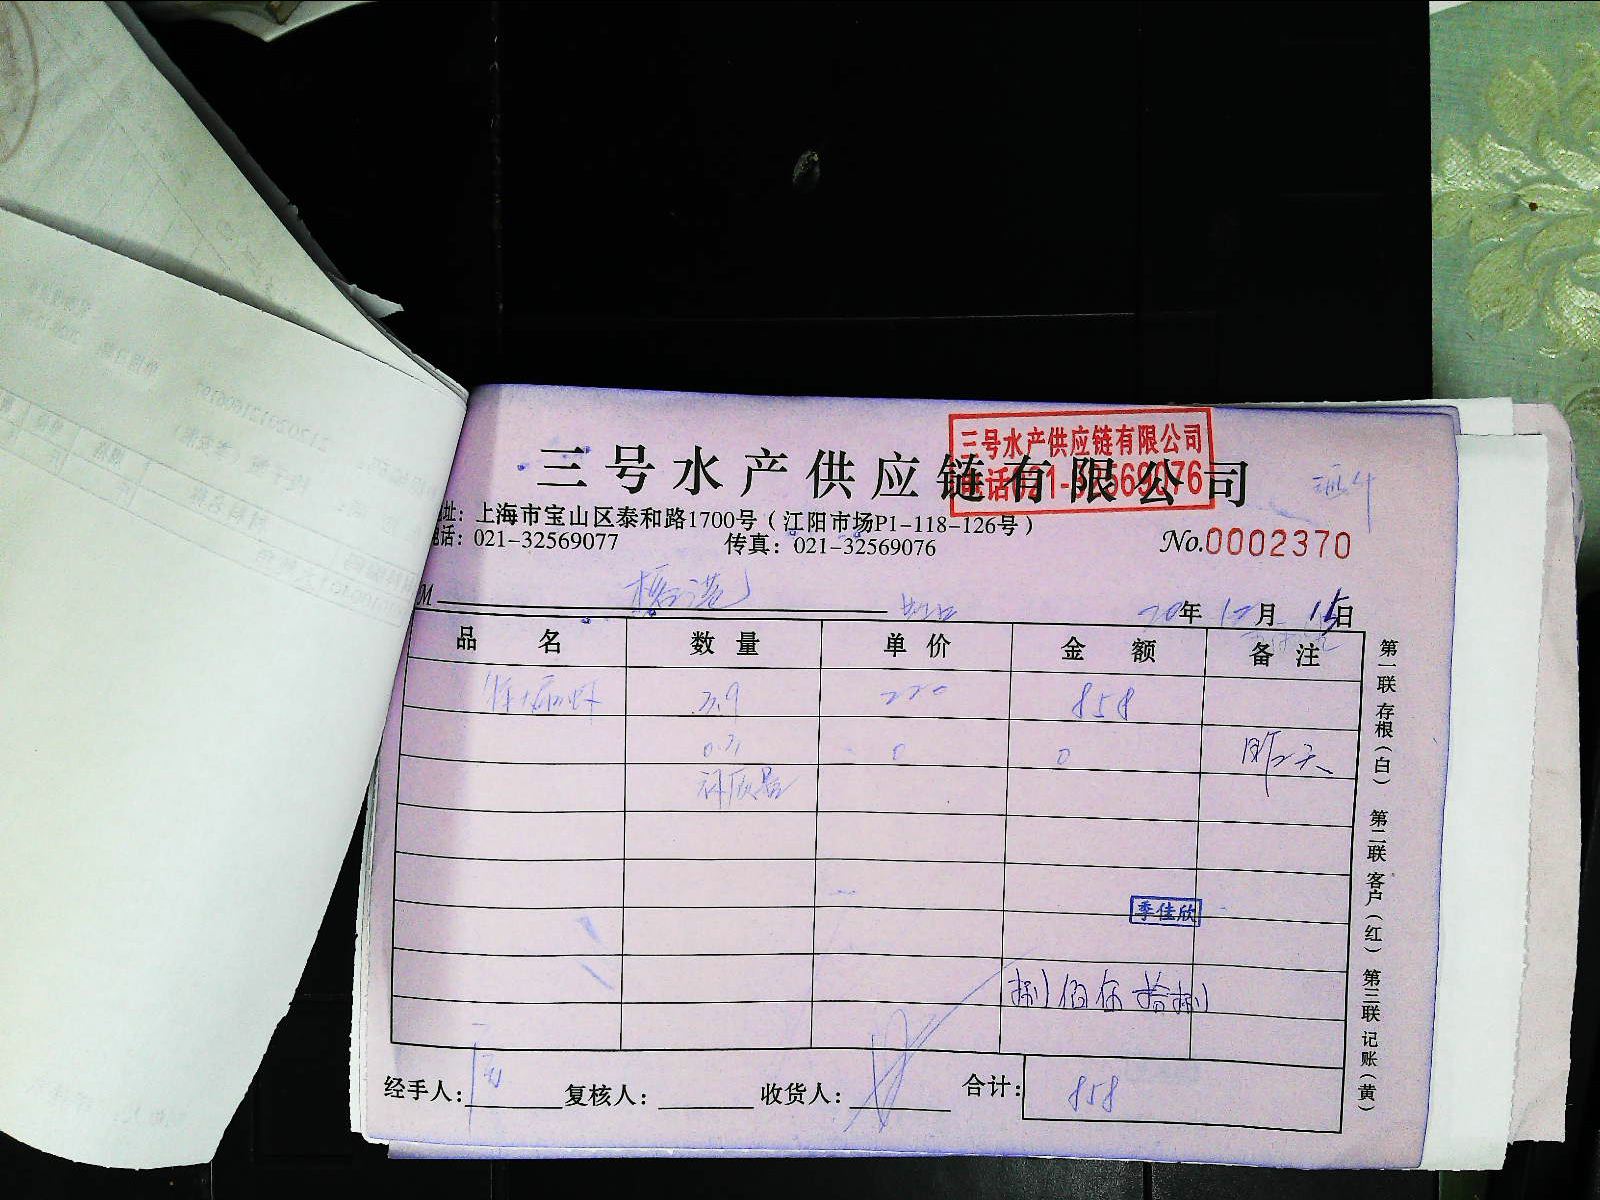 三号水产供应链有限公司
三号水产供应链有限公司
电话021-32569076
地址：上海市宝山区泰和路1700号（江阳市场P1-118-126号）
电话：021-32569077 传真：021-32569076
No.0002370
M
20年12月15日
品名 数量 单价 金额 备注
3.9 220 858
0 0 昨天
季佳欣
捌佰伍拾捌
经手人： 复核人： 收货人： 合计：858
第一联 存根（白） 第二联 客户（红） 第三联 记账（黄）